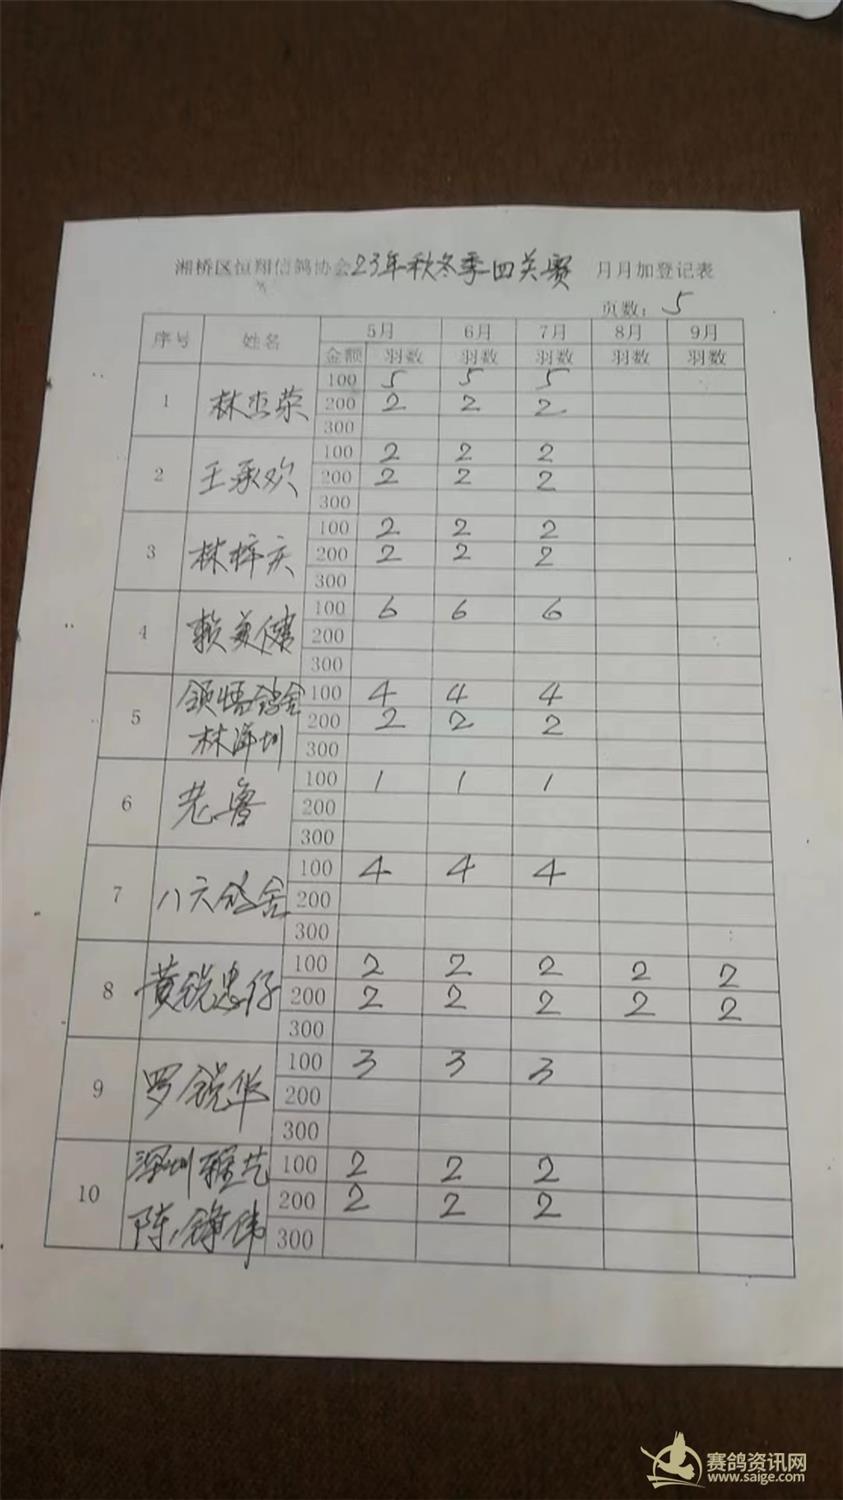 湘桥区恒翔信鸽协会23年秋冬季四关赛 月月加登记表
页数：5
序号 姓名 5月 6月 7月 8月 9月
金额 羽数 羽数 羽数 羽数 羽数
1 林杰荣 100 5 5 5
200 2 2 2
300
2 王承欢 100 2 2 2
200 2 2 2
300
3 林梓庆 100 2 2 2
200 2 2 2
300
4 赖美健 100 6 6 6
200
300
5 领悟鸽舍 100 4 4 4
林泽圳 200 2 2 2
300
6 老鲁 100 1 1 1
200
300
7 八六鸽舍 100 4 4 4
200
300
8 黄锐忠仔 100 2 2 2 2 2
200 2 2 2 2 2
300
9 罗锐华 100 3 3 3
200
300
10 深圳 艺 100 2 2 2
陈铮伟 200 2 2 2
300
赛鸽资讯网
www.saige.com